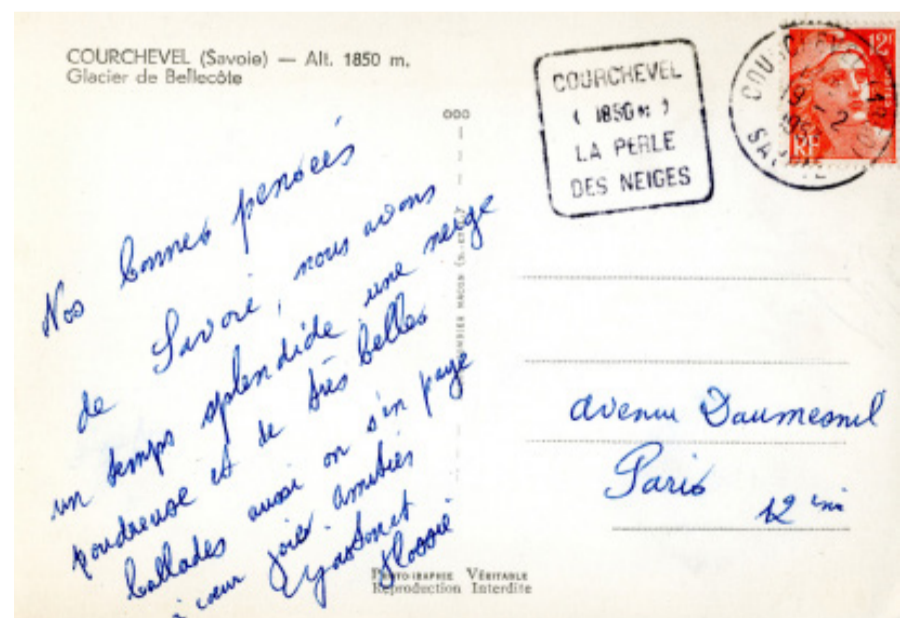 COURCHEVEL (Savoie) — Alt. 1850 m.
Glacier de Bellecôte
COURCHEVEL
( 1850 m )
LA PERLE
DES NEIGES
12F
RF
Nos bonnes pensées
de Savoie, nous avons
un temps splendide une neige
poudreuse et de très belles
ballades aussi on s'en paye
à cœur joie amitiés
avenue Daumesnil
Paris
12
PHOTOGRAPHIE VÉRITABLE
Reproduction Interdite